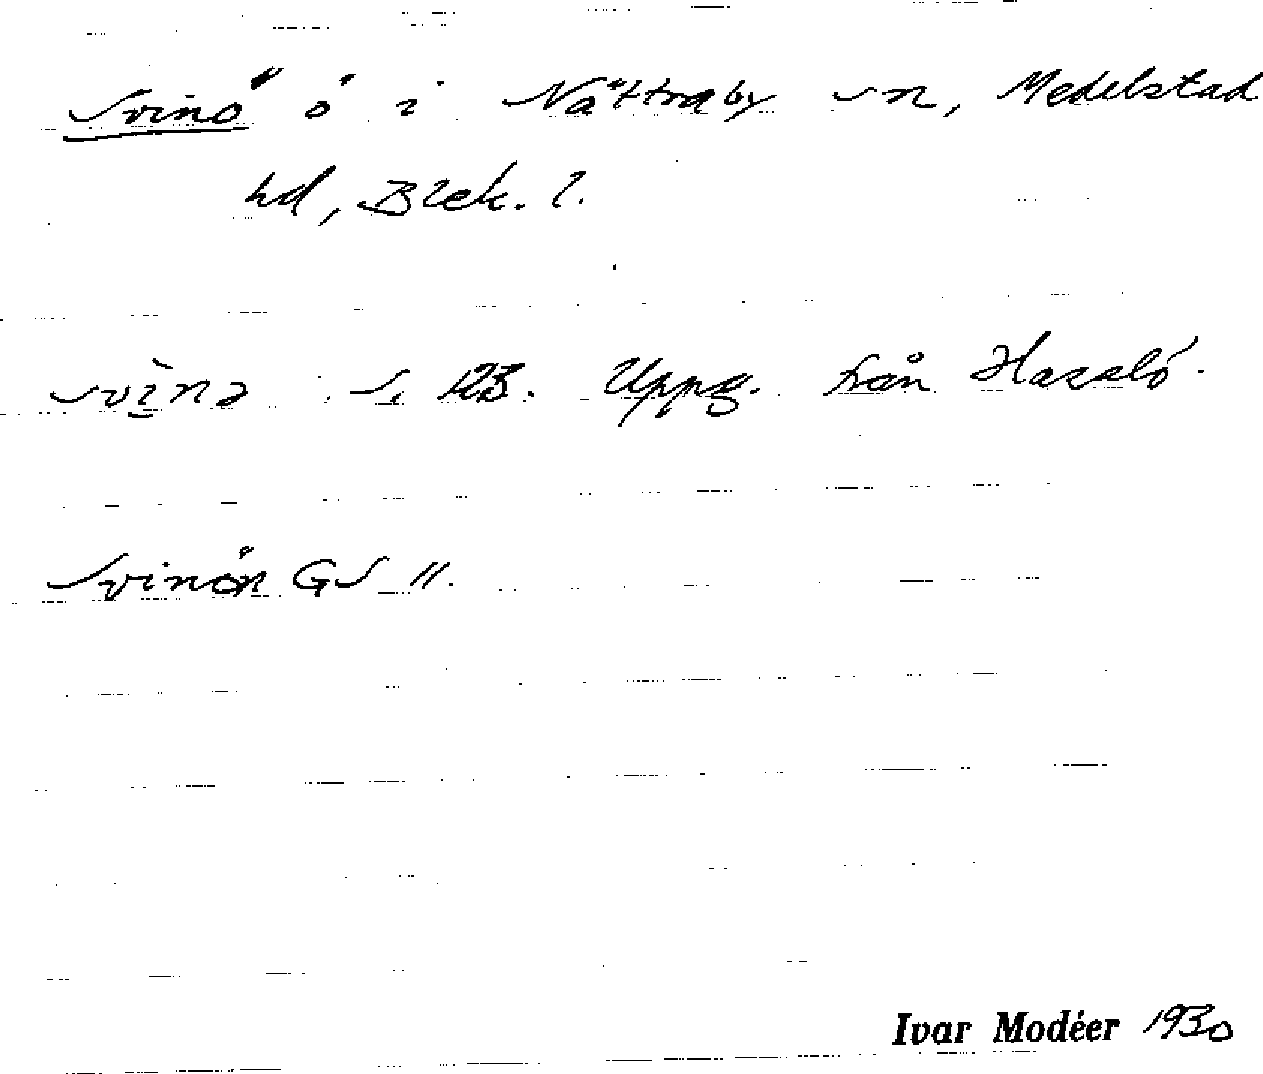 Svinö ö i Nättraby sn, Medelstad
hd, Blek. l.
svìnə s. DB. Uppg. från Hasslö.
Svinön GS 11.
Ivar Modéer 1930